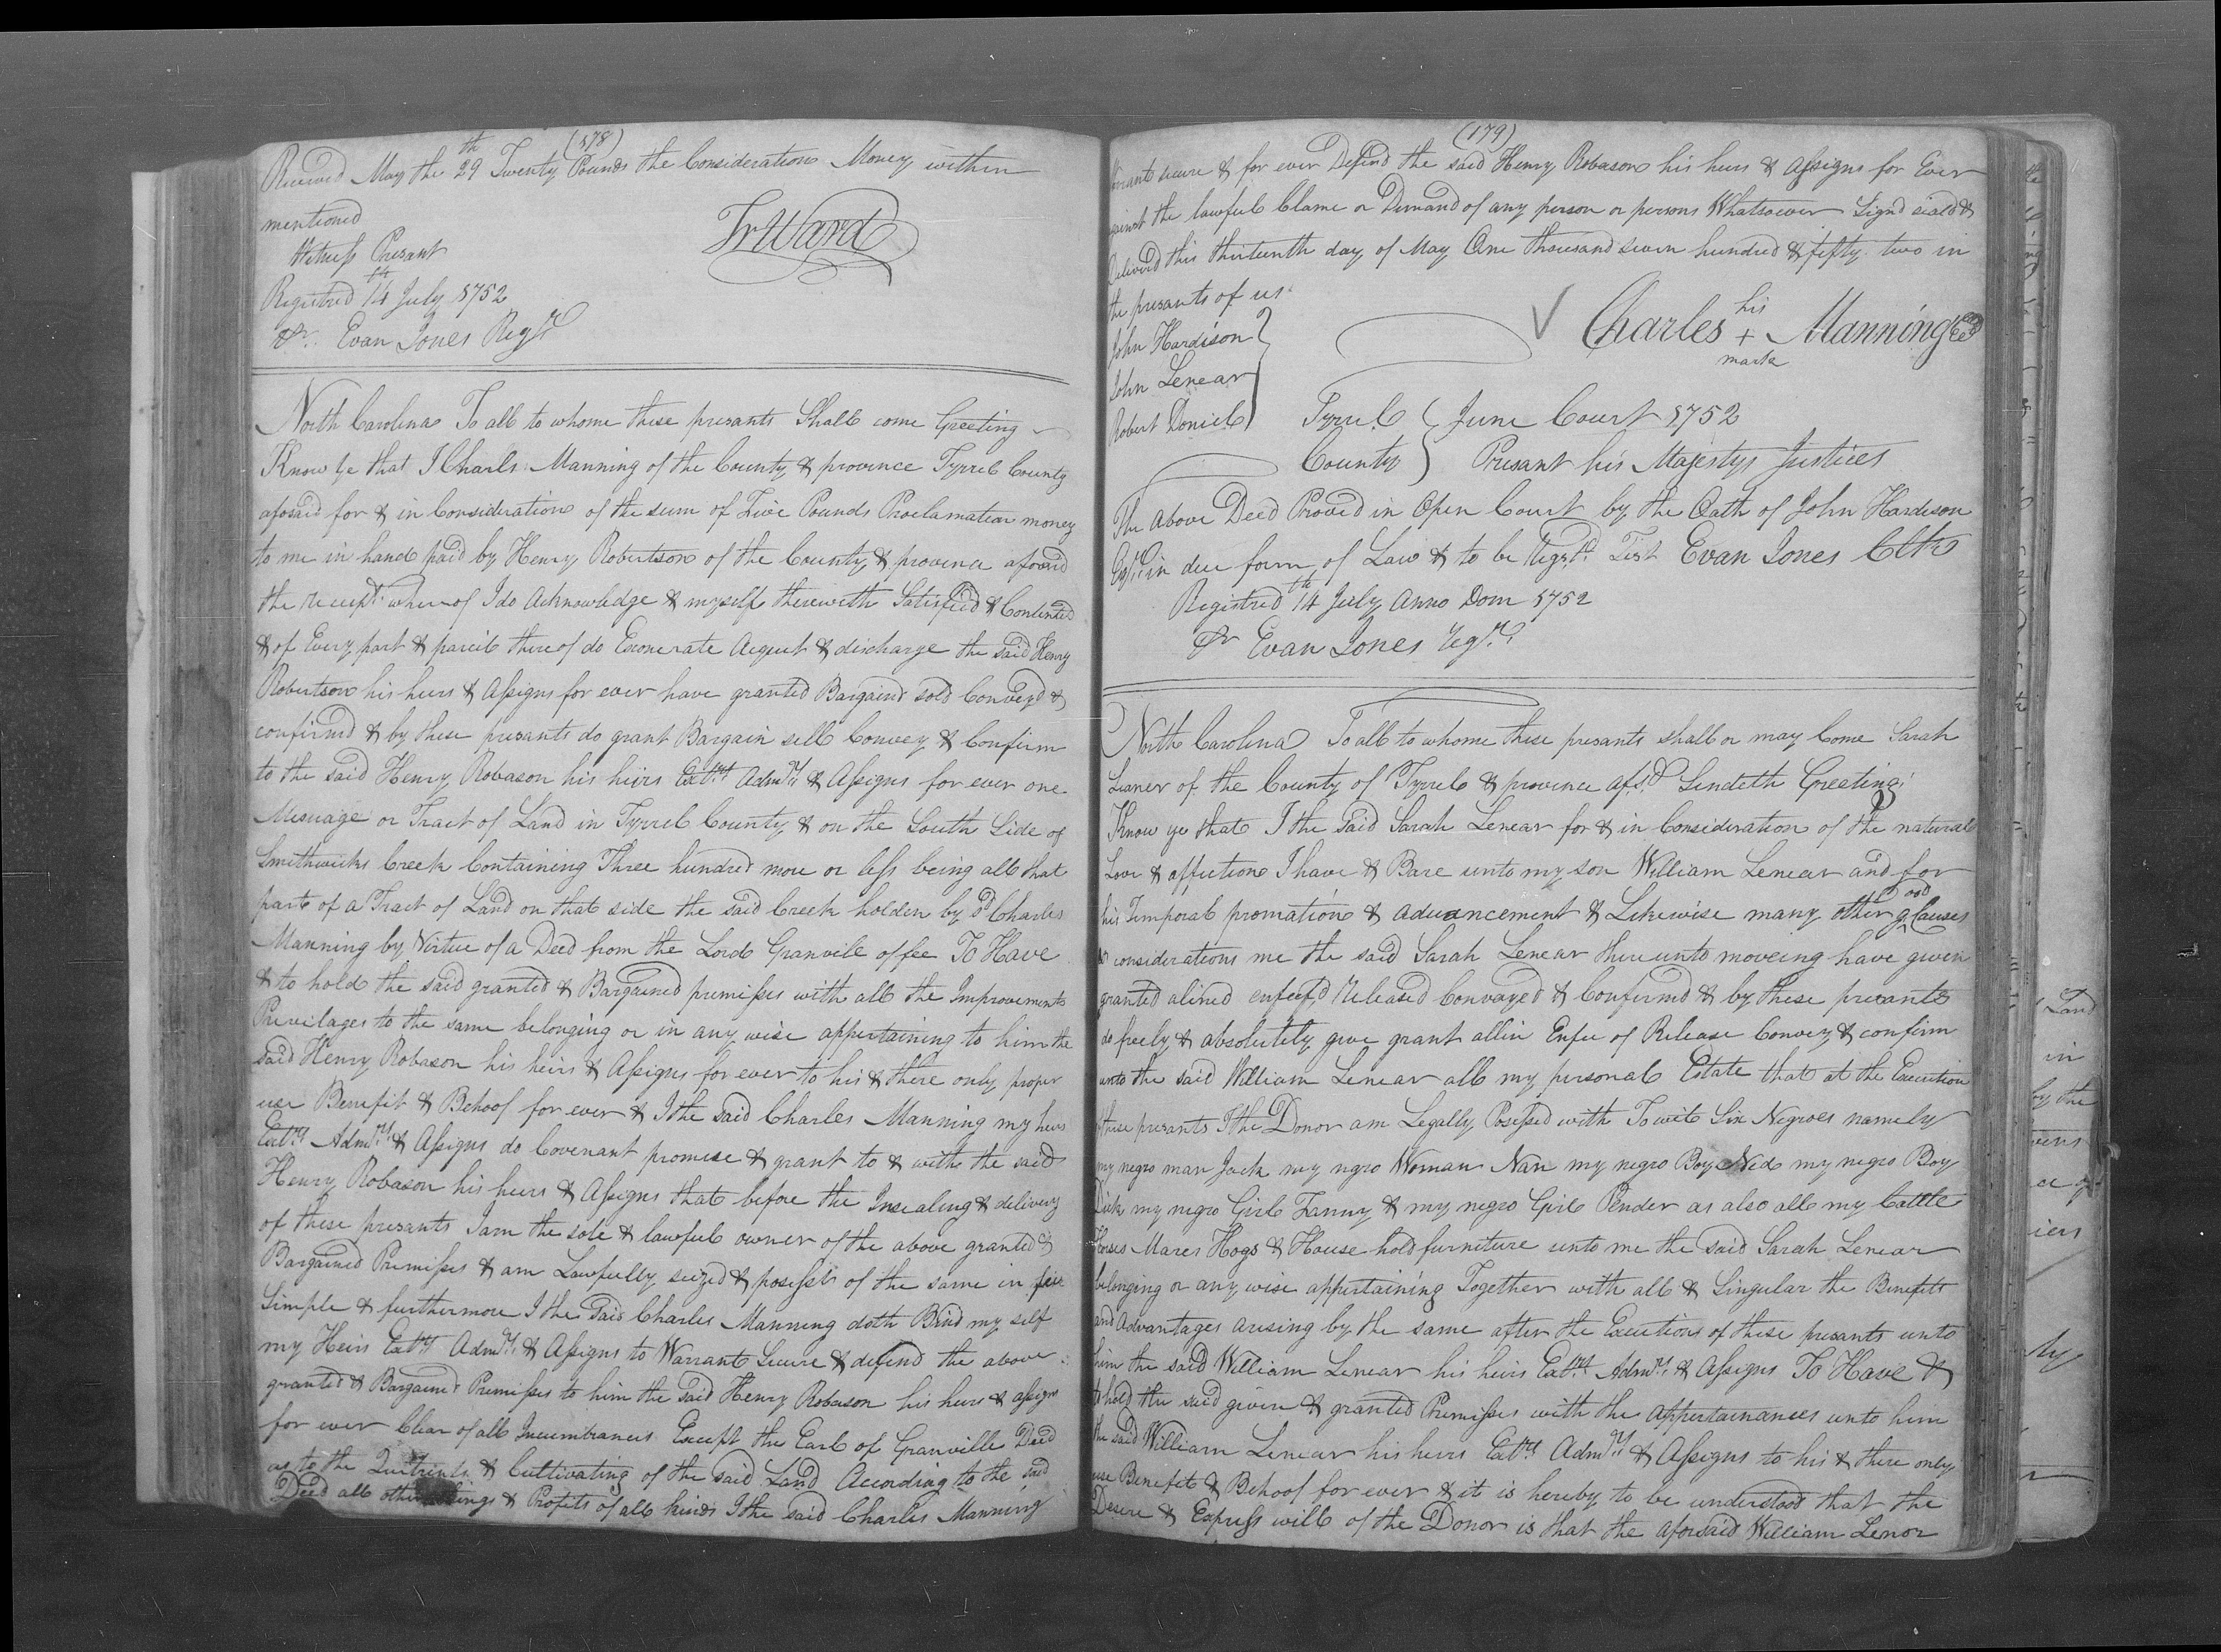 (178)
Received May the 29th Twenty Pounds the Consideration Money within
mentioned
Witness Presant
Tr Ward
Registred 14th July 1752
Pr. Evan Jones Regr
North Carolina To all to whome these presants Shall come Greeting
Know Ye that I Charls Manning of the County & province Tyrrel County
aforaid for & in Consideration of the sum of Five Pounds Proclamation money
to me in hand paid by Henry Robertson of the County & provence aforaid
the receipt whereof I do Acknowledge & myself therewith Satisfied & Contented
& of Every part & parcil thereof do Exonerate Acquit & discharge the said Henry
Robertson his heirs & Assigns for ever have granted Bargaind sold Conveyd &
confirmd & by these presants do grant Bargain sell Convey & Confirm
to the said Henry Robason his heirs Exctrs Admrs & Assigns for ever one
Mesuage or Tract of Land in Tyrrel County & on the South Side of
Smithwicks Creek Containing Three hundred more or less being all that
part of a Tract of Land on that side the said Creek holden by sd Charles
Manning by Virtue of a Deed from the Lord Granvile offee To Have
& to hold the said granted & Bargained premisses with all the Improvements
Previlages to the same belonging or in any wise appertaining to him the
said Henry Robason his heirs & Assigns for ever to his & there only proper
use Benefit & Behoof for ever & I the said Charles Manning my heirs
Exctrs Admrs & Assigns do Covenant promise & grant to & with the said
Henry Robason his heirs & Assigns that before the Insealing & delivery
of these presants I am the sole & lawful owner of the above granted &
Bargained Premisses & am Lawfully seized & posesst of the same in fee
Simple & furthermore I the said Charles Manning doth Bind my self
my Heirs Exctrs Admrs & Assigns to Warrant Secure & defend the above
granted & Bargaind Premisses to him the said Henry Robason his heirs & assigns
for ever Clear of all Incumbrances Except the Earl of Granville Deed
as to the Quitrents & Cultivating of the said Land According to the said
Deed all other things & Profits of all kinds I the said Charles Manning
(179)
Warrant secure & for ever Defend the said Henry Robason his heirs & assigns for Ever
against the lawful Clame or Demand of any person or persons Whatsoever Signd seald &
Delivered this thirteenth day of May One thousand seven hundred & fifty two in
the presants of us
John Hardison
John Lenear
Robert Doniel
Charles his + mark Manning
Tyrrel County June Court 1752
Presant his Majestys Justices
The Above Deed Proved in Open Court by the Oath of John Hardison
Esqr in due form of Law & to be Regstd Test Evan Jones Clk
Registred 14th July Anno Dom 1752
Pr Evan Jones Regr
North Carolina To all to whome these presants shall or may Come Sarah
Leaner of the County of Tyrrel & province afsd Sendeth Greeting
Know ye that I the said Sarah Lenear for & in Consideration of the natural
Love & affection I have & Bare unto my son William Lenear and for
his Timporal promation & aduancement & Likewise many other good Causes
& considerations me the said Sarah Lenear thereunto moveing have given
granted alined enfeefd Released Convayed & Confirmd & by these presants
do freely & absolutely give grant allin Enfee of Release Convey & confirm
unto the said William Lenear all my personal Estate that at the Execution
of these presants I the Donor am Legally Posessed with To wit Six Negroes namely
my negro man Jack my ngro Woman Nan my negro Boy Ned my negro Boy
Dick my negro Girl Fanny & my negro Girl Pender as also all my Cattle
Horses Mares Hogs & House hold furniture unto me the said Sarah Lenear
belonging or any wise appertaining Together with all & Singular the Benefits
and Advantages arising by the same after the Execution of these presants unto
him the said William Lenear his heirs Exctrs Admrs & Assigns To Have &
to hold the said given & granted Premisses with the appertainances unto him
the said William Lenear his heirs Exctrs Admrs & Assigns to his & there only
use Benefit & Behoof for ever & it is hereby to be understood that the
Desire & Express will of the Donor is that the aforsaid William Lenor
Land
in
by the